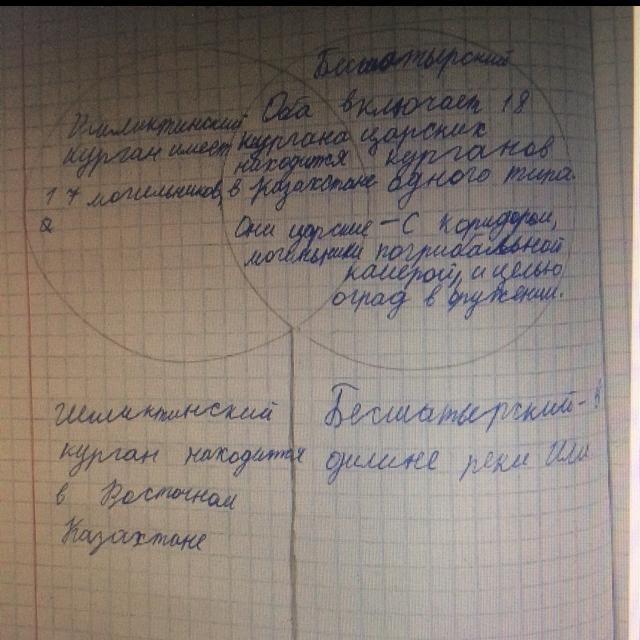 Бесшатырский
Шиликтинский
курган имеет
17 могильников
Оба
кургана
находится
в Казахстане
Они царские –
могильники
включает 18
царских
курганов
одного типа.
С коридором,
погрибальной
камерой, и целью
оград в
Шиликтинский
курган находится
в Восточном
Казахстане
Бесшатырский - в
долине реки Или